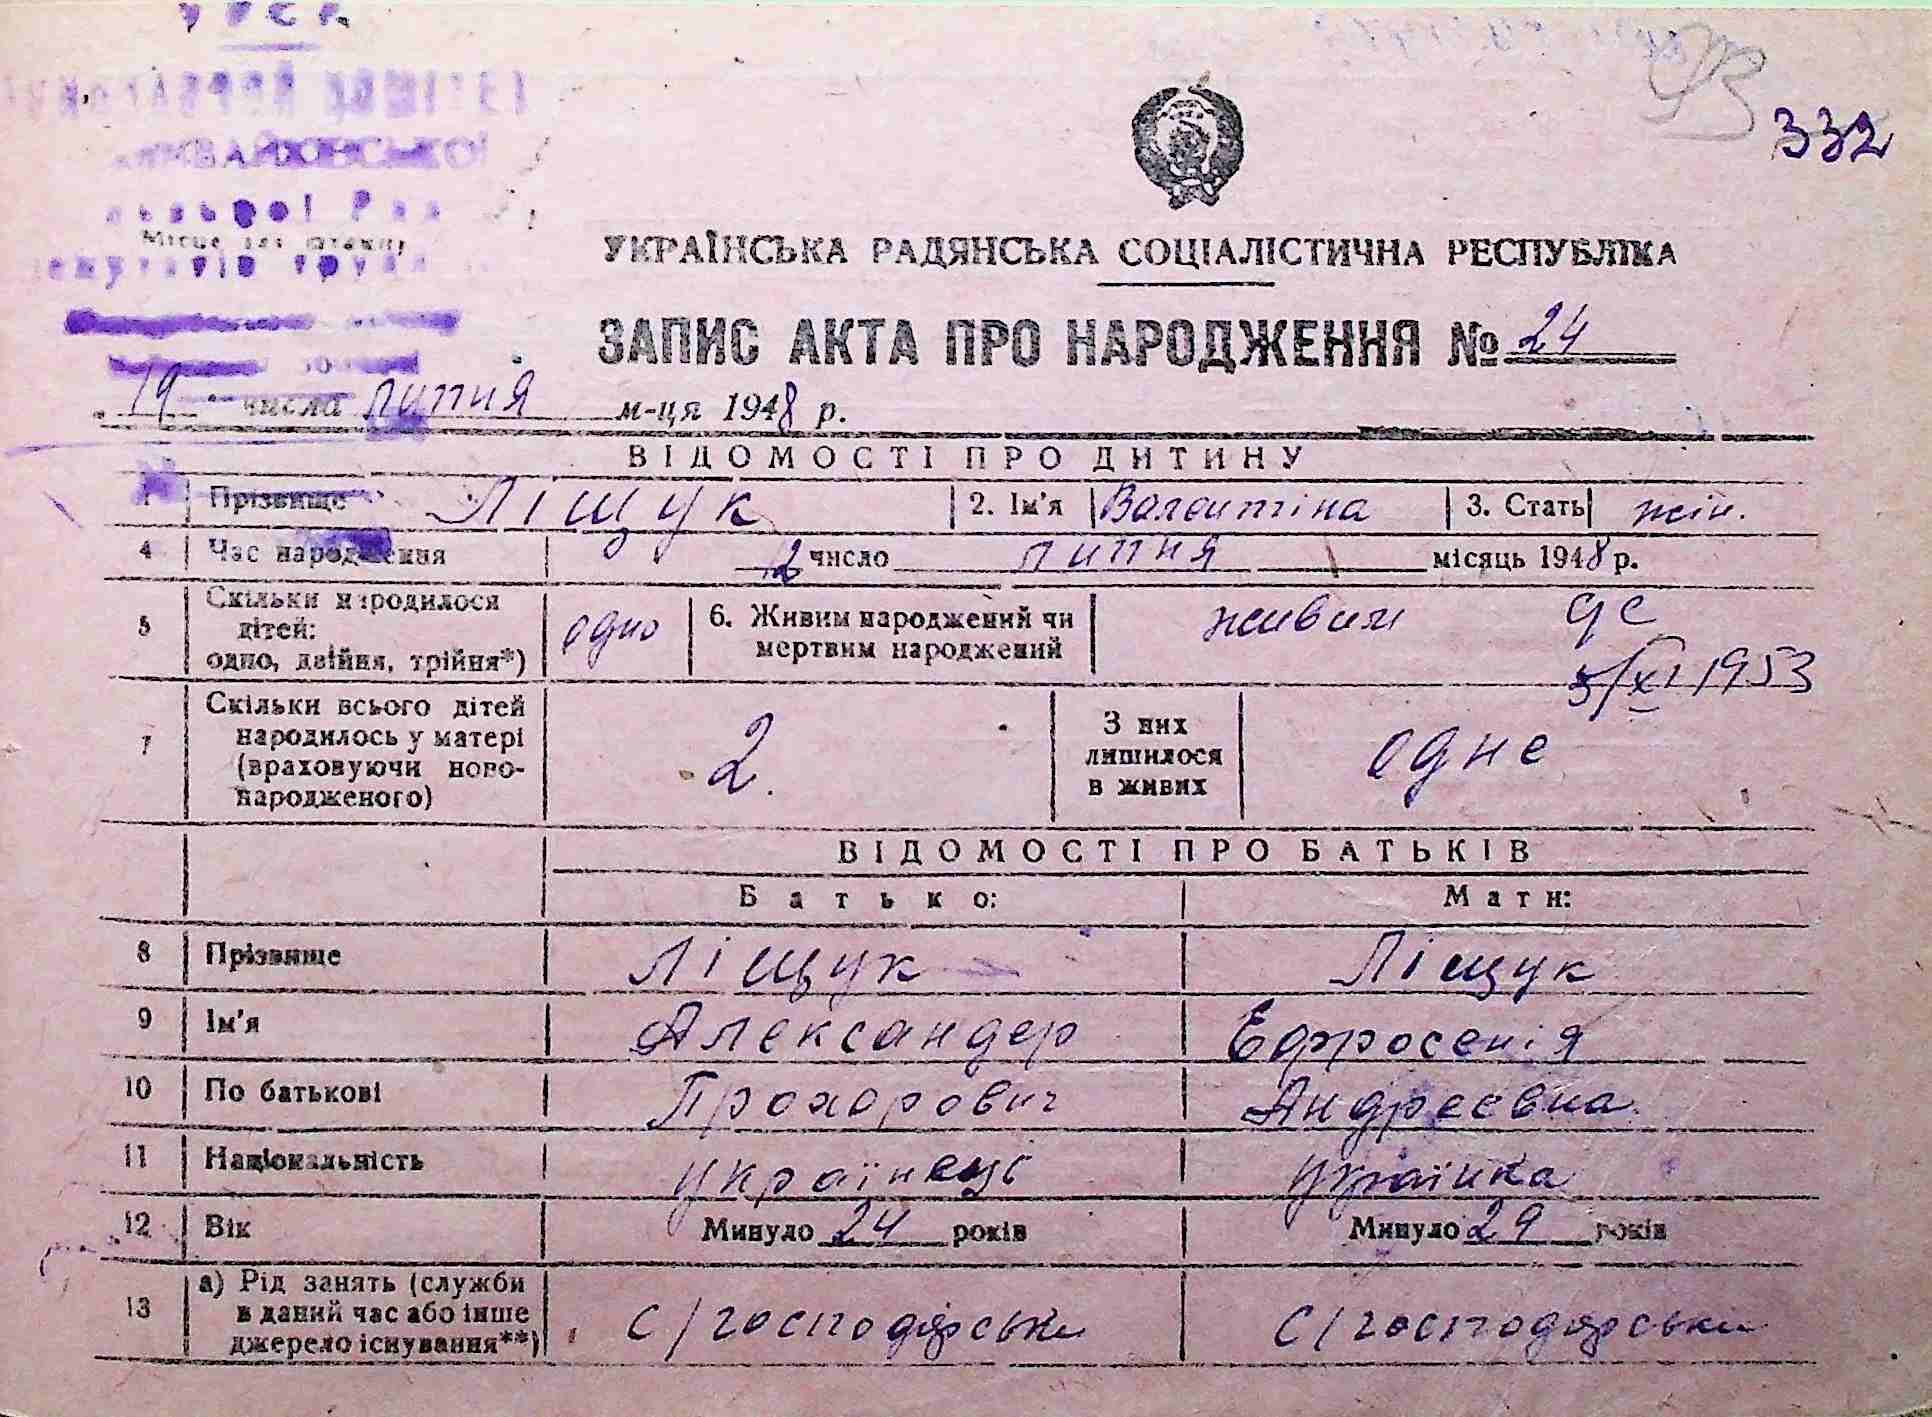 УРСР
332
УКРАЇНСЬКА РАДЯНСЬКА СОЦІАЛІСТИЧНА РЕСПУБЛІКА
ЗАПИС АКТА ПРО НАРОДЖЕННЯ № 24
19 числа липня м-ця 1948 р.
ВІДОМОСТІ ПРО ДИТИНУ
1 Прізвище Ліщук 2. Ім'я Валентіна 3. Стать жін.
4 Час народження 12 число липня місяць 1948 р.
5 Скільки народилося дітей: одно, двійня, трійня*) одно 6. Живим народжений чи мертвим народжений живим
5/XI 1953
7 Скільки всього дітей народилось у матері (враховуючи новонародженого) 2. З них лишилося в живих одне
ВІДОМОСТІ ПРО БАТЬКІВ
Батько: Мати:
8 Прізвище Ліщук Ліщук
9 Ім'я Александер Ефросенія
10 По батькові Прохорович Андреєвна
11 Національність українець українка
12 Вік Минуло 24 років Минуло 29 років
13 а) Рід занять (служби в даний час або інше джерело існування**) с/господарськи с/господарськи